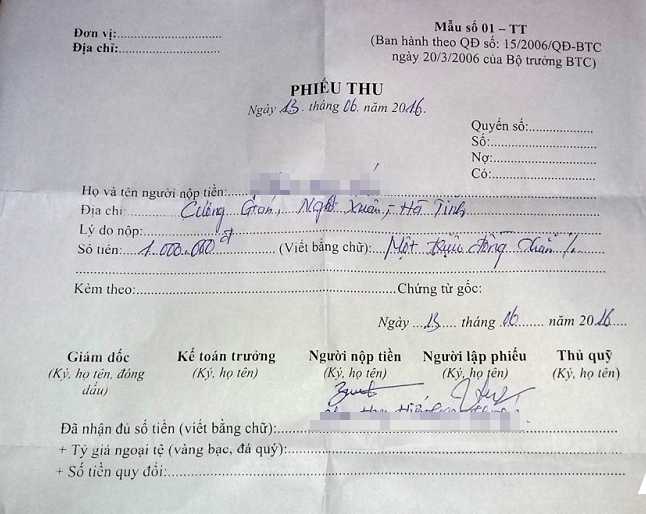 Đơn vị:....................
Địa chỉ:....................
Mẫu số 01 – TT
(Ban hành theo QĐ số: 15/2006/QĐ-BTC
ngày 20/3/2006 của Bộ trưởng BTC)
PHIẾU THU
Ngày 13 tháng 06 năm 2016.
Quyển số:....................
Số:....................
Nợ:....................
Có:....................
Họ và tên người nộp tiền:
Địa chỉ Cương Gián, Nghi Xuân, Hà Tĩnh
Lý do nộp:....................
Số tiền: 1.000.000đ (Viết bằng chữ): Một triệu đồng chẵn
Kèm theo:....................Chứng từ gốc:
Ngày 13 tháng 06 năm 2016
Giám đốc Kế toán trưởng Người nộp tiền Người lập phiếu Thủ quỹ
(Ký, họ tên, đóng dấu) (Ký, họ tên) (Ký, họ tên) (Ký, họ tên) (Ký, họ tên)
Đã nhận đủ số tiền (viết bằng chữ):....................
+ Tỷ giá ngoại tệ (vàng bạc, đá quý):....................
+ Số tiền quy đổi:....................